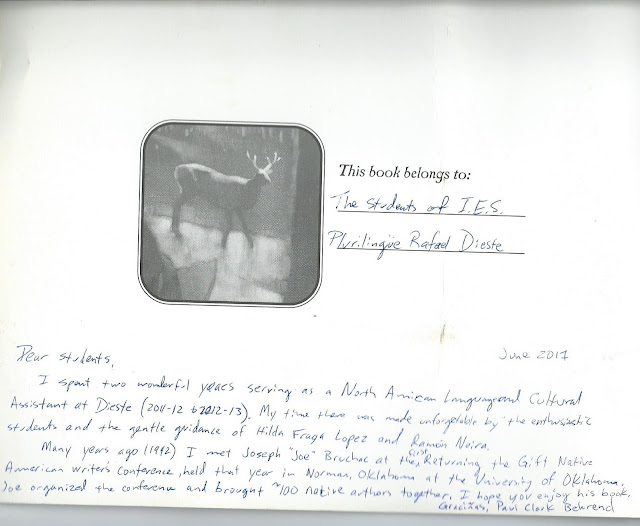 This book belongs to:
The students of I.E.S.
Plurilingüe Rafael Dieste
Dear students,
June 2017
I spent two wonderful years serving as a North American Language and Cultural
Assistant at Dieste (2011-12 to 2012-13). My time there was made unforgetable by the enthusiastic
students and the gentle guidance of Hilda Fraga Lopez and Ramón Neira.
Many years ago (1992) I met Joseph "Joe" Bruchac at the first Returning the Gift Native
American writer's conference, held that year in Norman, Oklahoma at the University of Oklahoma.
Joe organized the conference and brought ~100 native authors together. I hope you enjoy his book.
Graciñas, Paul Clark Behrend